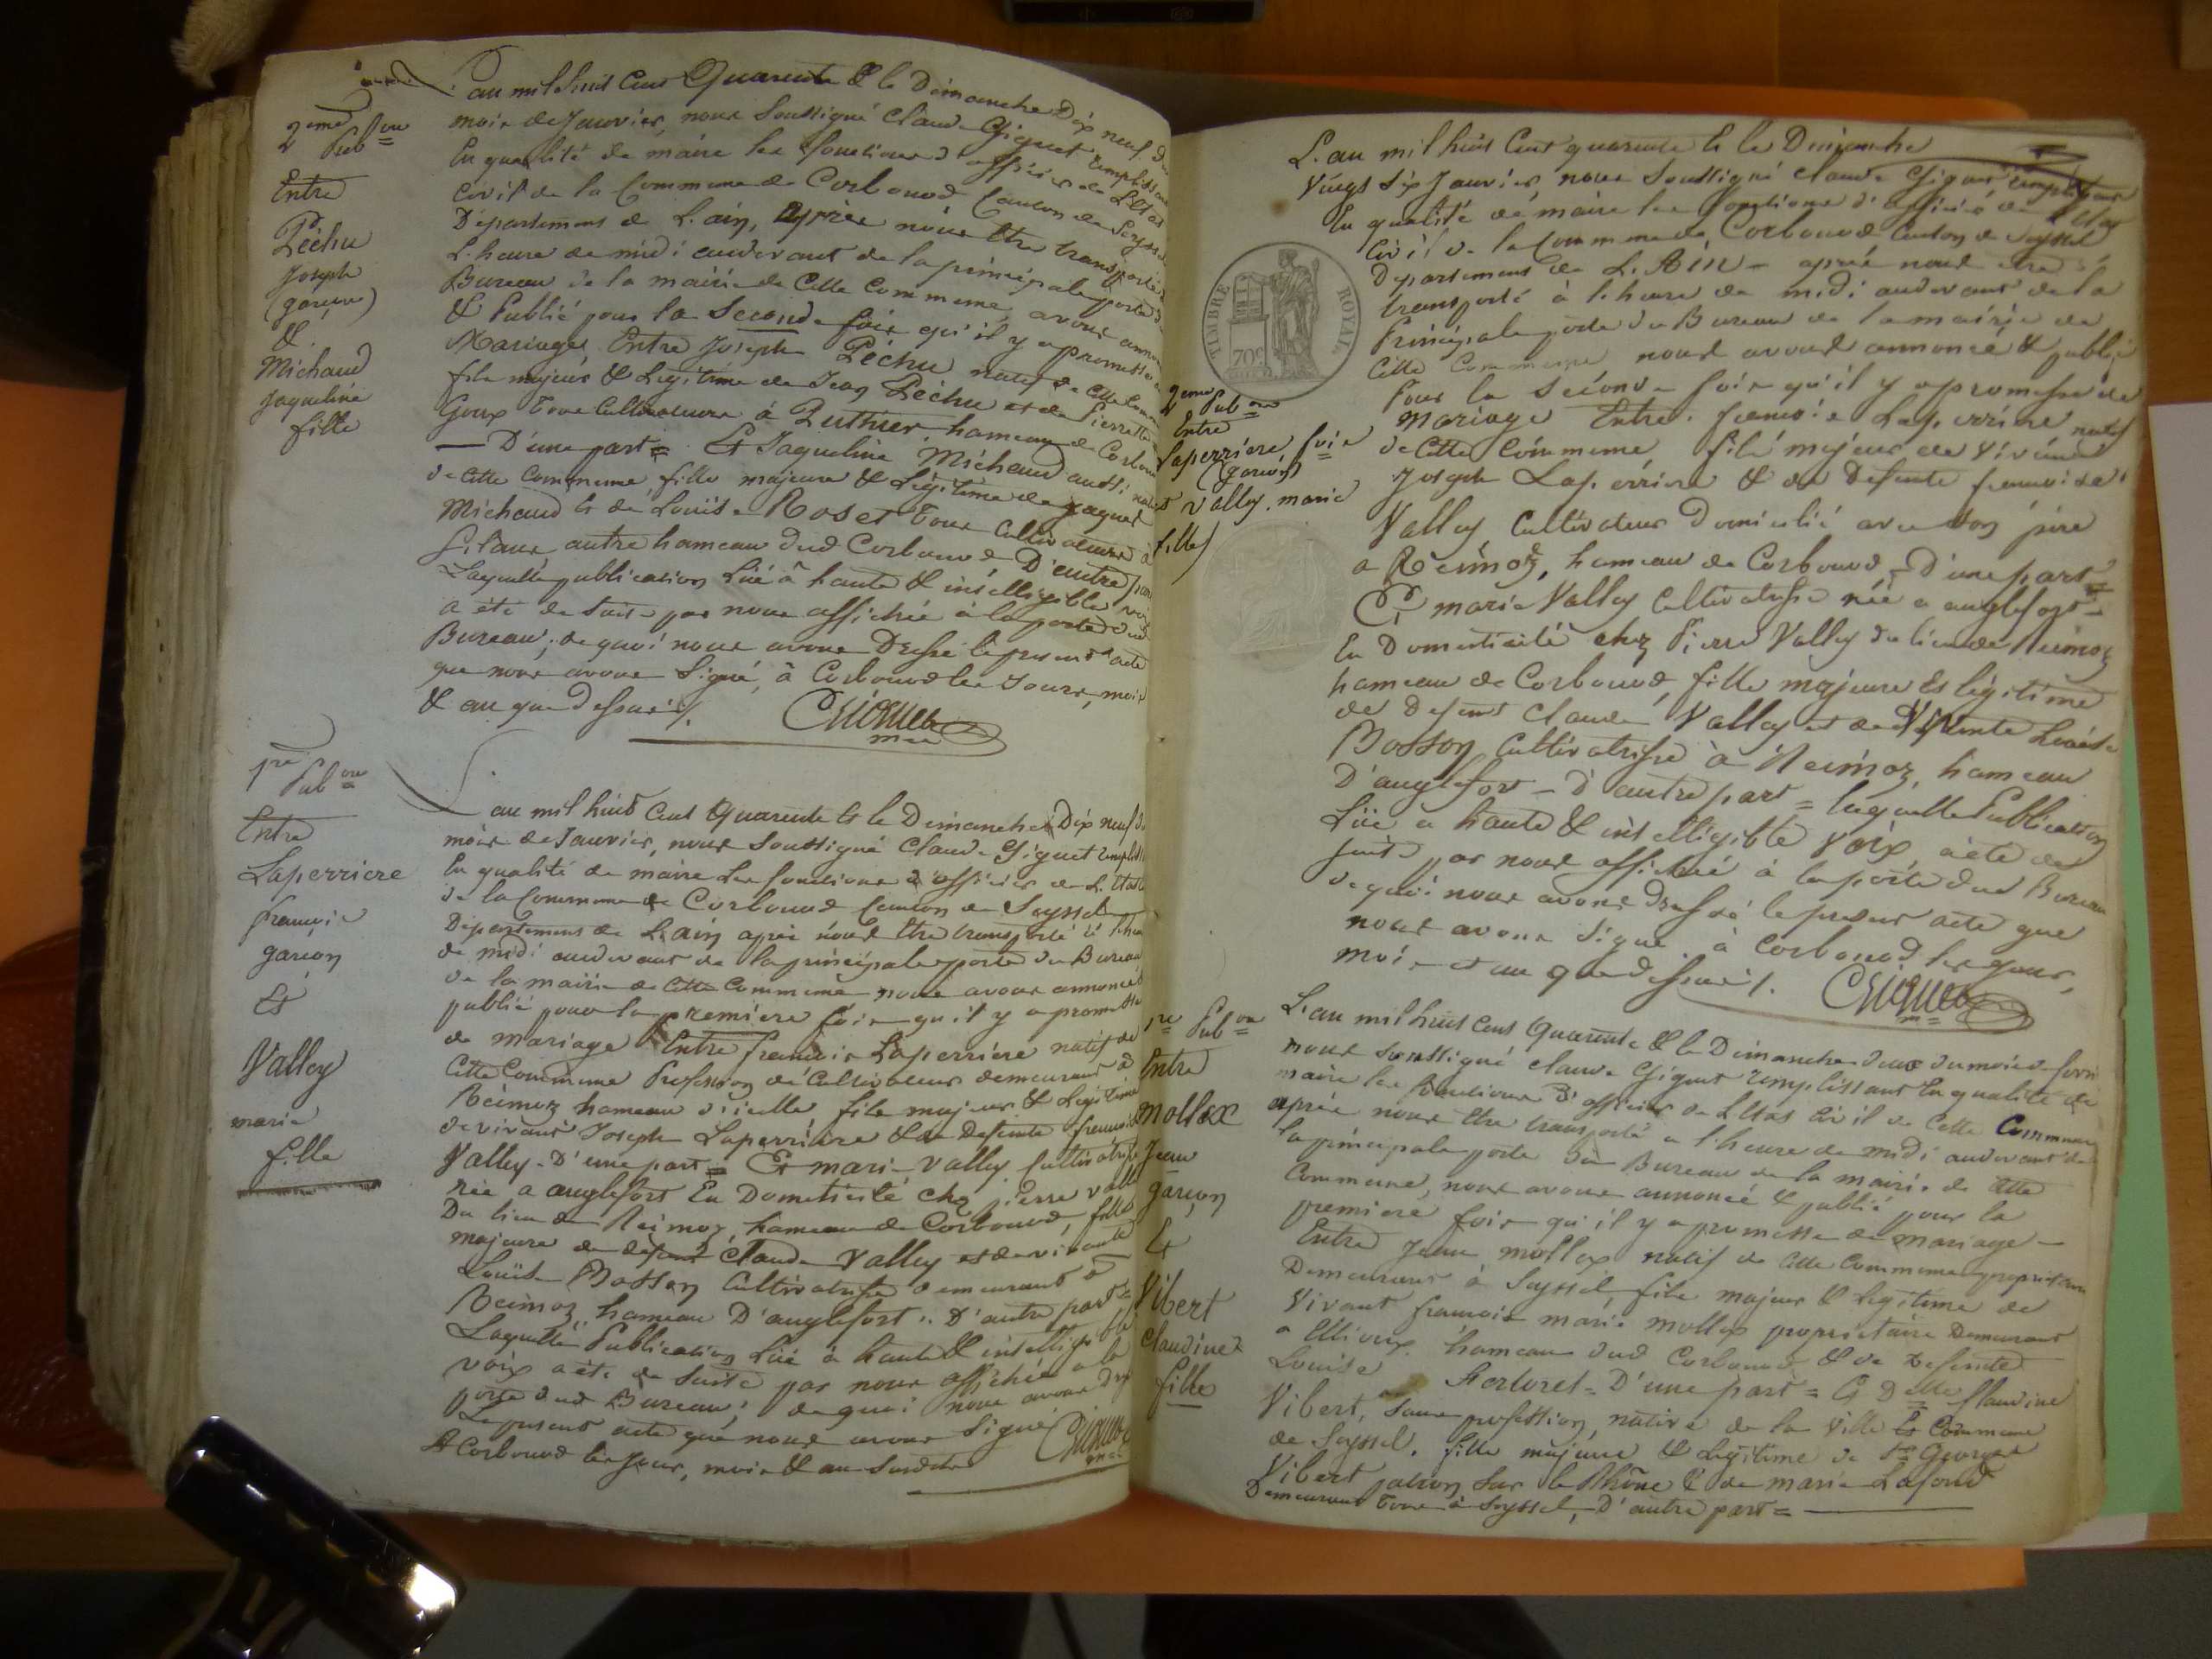 2eme Pubon
Entre
Péchu
Joseph
(garçon)
&
Michaud
Jaqueline
fille
L'an mil huit Cent Quarante & le Dimanche Dix neuf du
mois de Janvier, nous Soussigné Claude Giguet remplissant
En qualité de maire les fonctions d'officier de L'Etat
Civil de la Commune de Corbonod Canton de Seyssel
Département de L'ain, Après nous être transporté à
L'heure de midi audevant de la principale porte du
Bureau de la mairie de Cette Commune, avons annoncé
& Publié pour la Seconde fois qu'il y a promesse de
Mariage Entre Joseph Péchu natif de Cette Commune
fils majeur & Légitime de Jean Péchu et de Pierrette
Goux tous Cultivateurs à Puthier, hameau de Corbonod
— D'une part = Et Jaqueline Michaud aussi native
de Cette Commune fille majeure & Légitime de Jaques
Michaud & de Louise Roset tous Cultivateurs à
autre hameau dud Corbonod D'autre part
Laquelle publication Lüe à haute & intelligible voix
a été de Suite par nous affichée à la porte dud
Bureau; de quoi nous avons Dressé le présent acte
que nous avons Signé, à Corbonod les Jours, mois
& an que dessus /.
Giguet
mre
1re
Pubon
Entre
Laperriere
françois
garçon
Et
Valley
marie
fille
L'an mil huit Cent Quarante & le Dimanche Dix neuf du
mois de Janvier, nous Soussigné Claude Giguet remplissant
En qualité de maire Les fonctions d'officier de L'Etat
de la Commune de Corbonod Canton de Seyssel
Département de L'ain après nous être transporté à L'heure
de midi audevant de la principale porte du Bureau
de la mairie de Cette Commune nous avons annoncé &
publié pour la première fois qu'il y a promesse
de mariage Entre françois Laperrière natif de
Cette Commune Profession de Cultivateur demeurant à
Reimoz hameau d'icelle fils majeur & Légitime
de vivant Joseph Laperrière & de Defunte françoise
Valley. D'une part = Et marie Valley Cultivatrice
née à anglefort En Domesticité chez pierre Valley
Du lieu de Reimoz, hameau de Corbonod, fille
majeure de défunt Claude Valley et de vivante
Louise Bosson Cultivatrice demeurant à
Reimoz, hameau D'anglefort .. D'autre part =
Laquelle Publication Lüe à haute & intelligible
voix a été de Suite par nous affichée à la
porte dud Bureau; de quoi nous avons Dressé
Le present acte que nous avons Signé
A Corbonod les Jour, mois & an Susdits
Giguet
mre
2eme Pubon
Entre
Laperriere fois
(garçon)
& Valley marie
fille
TIMBRE ROYAL
70c
L'an mil huit Cent quarante & le Dimanche
Vingt Six Janvier, nous Soussigné claude Giguet remplissant
En qualité de maire les fonctions d'officier de L'Etat
Civil de la Commune de Corbonod Canton de Seyssel
Département de L'Ain - après nous être
transporté à L'heure de midi audevant de la
Principale porte du Bureau de la mairie de
Cette Commune nous avons annoncé & publié
Pour la Seconde fois qu'il y a promesse de
Mariage Entre françois Laperrière natif
de Cette Commune fils majeur de vivant
Joseph Laperrière & de Defunte françoise
Valley, Cultivateur Domicilié avec Son père
à Reimoz, hameau de Corbonod, - D'une part =
Et marie Valley Cultivatrice née à anglefort -
En Domesticité chez Pierre Valley du lieu de Reimoz
hameau de Corbonod, fille majeure & légitime
de Defunt Claude Valley et de Vivante Louise
Bosson Cultivatrice à Reimoz, hameau
D'anglefort - D'autre part = laquelle Publication
Lüe à haute & intelligible voix a été de
Suite par nous affichée à la porte dud Bureau
de quoi nous avons dressé le présent acte que
nous avons Signé, à Corbonod les jour,
mois et an que dessus /.
Giguet
m
1re Pubon
Entre
mollex
Jean
garçon
&
Vibert
claudine
fille
L'an mil huit Cent Quarante & le Dimanche deux du mois de fevrier
nous soussigné claude Giguet remplissant En qualité de
maire les fonctions D'officier de L'Etat Civil de Cette Commune
après nous être transporté à l'heure de midi audevant de
la principale porte du Bureau de la mairie de Cette
Commune, nous avons annoncé & publié pour la
premiere fois qu'il y a promesse de mariage —
Entre Jean mollex natif de Cette Commune propriétaire
Demeurant à Seyssel, fils majeur & Légitime de
Vivant françois marie mollex propriétaire Demeurant
à hameau dud Corbonod & de Defunte
Louise D'une part = Et Delle Claudine
Vibert, Sans profession, native de la Ville & Commune
de Seyssel, fille majeure & Légitime de Sr George
Vibert patron Sur le Rhône & de marie Lafond
Demeurant tous à Seyssel, - D'autre part = —